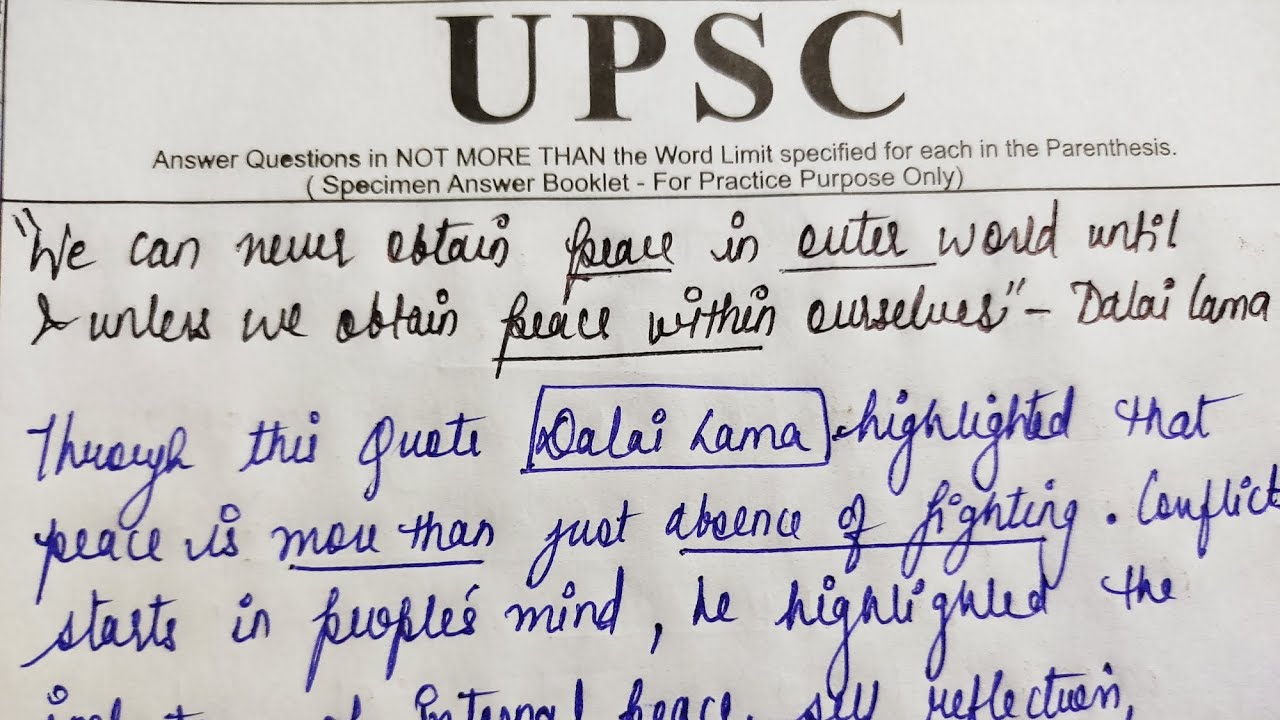 UPSC
Answer Questions in NOT MORE THAN the Word Limit specified for each in the Parenthesis.
( Specimen Answer Booklet - For Practice Purpose Only)
"We can never obtain peace in outer world until
& unless we obtain peace within ourselves" - Dalai Lama
Through this Quote Dalai Lama highlighted that
peace is more than just absence of fighting. Conflict
starts in people's mind, he highlighted the
Internal peace, self reflection,